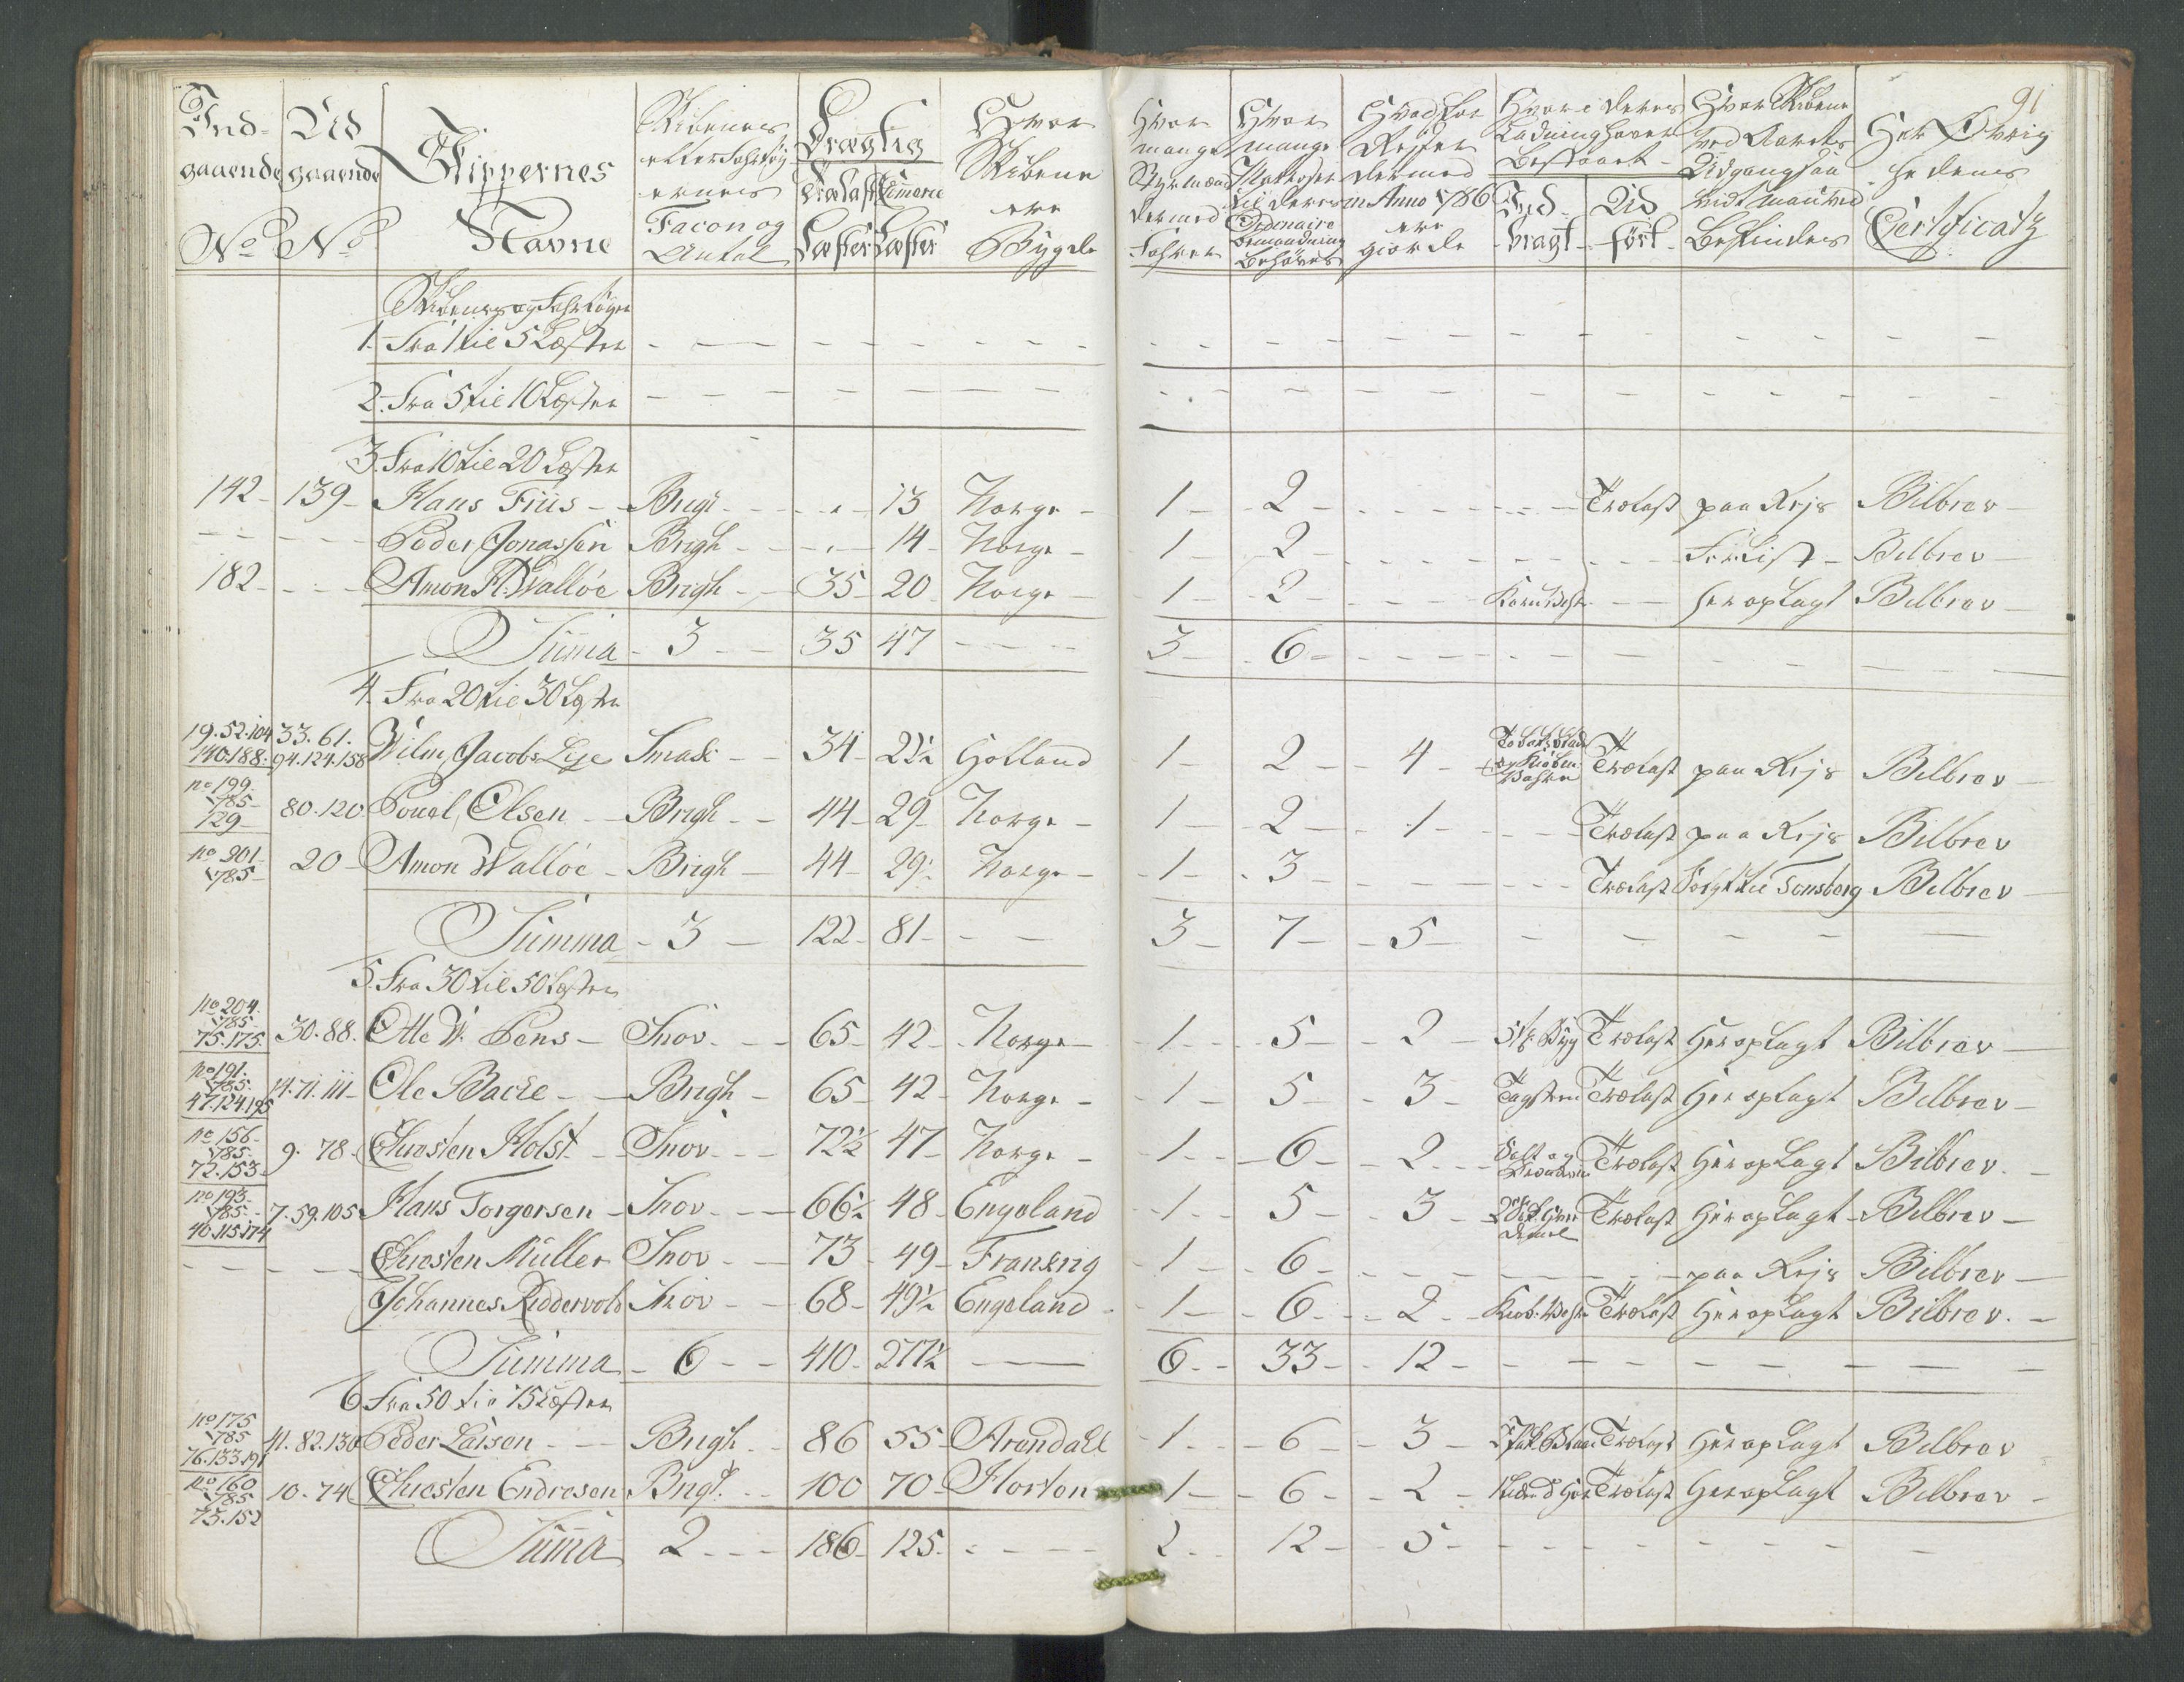 91
Ind-
gaaende
No
Ud
gaaende
No
Skippernes
Navne
Skibenes
eller Fahrtöy
ernes
Facon og
Antal
Drægtig
Trælast Comerce
Læster Læster
Hvor
Skibene
ere
Bygde
Hvor
mange
Styrmænd
dermed
Fahrer
Hvor
mange
Matroser
til deres
Ordenaire
Bemanding
Behöves
Hvad for
Rejser
dermed
in Anno 1786
ere
giorde
Hvori deres
Ladning haver
Bestaaet
Ind-
bragt
Ud
fört
Hvor Skibene
ved Aarets
Udgang saa
vidt man ved
Befindes
Her Övrig
hedens
Certificatz
Skibenes og Fahrtöyer
1. Fra 1 til 5 Læster - - - - - -
2. Fra 5 til 10 Læster - - - - - -
3. Fra 10 til 20 Læster
142 - 139 - Hans Friis - Brigt - - 13 Norge - 1 - 2 - - - Trælast paa Rejs Bilbrev -
- - - Peder Jonassen Brigh - - 14 - Norge - 1 - 2 - - - Bilbrev -
182 - - - Amon H: Walløe Brigh - 35 - 20 Norge - 1 - 2 - - - her oplagt Bilbrev -
Suma - 3 - 35 47 - - 3 - 6 - - -
4. Fra 20 til 30 Læster
19.52.104 33.61.
140.188. 94.124.158 Wilm Jacobs Lye Smak - 34 - 22½ Holland 1 - 2 - 4 - Trælast paa Rejs Bilbrev -
no 199
1785
129 - 80.120 Pouel Olsen - Brigh - 44 - 29 - Norge - 1 - 2 - 1 - - Trælast paa Rejs Bilbrev
no 201
1785 - 20 - Amon Walløe - Brigh - 44 - 29½ Norge - 1 - 3 - - - Trælast Solgt til Tonsberg Bilbrev -
Summa - 3 - 122 - 81 - - 3 - 7 - 5 - - -
5. Fra 30 til 50 Læster
no 204.
1785
75.175. 30.88. Otte W. Pens - Snov. - 65 - 42 - Norge - 1 - 5 - 2 - Trælast Her oplagt Bilbrev -
no 191.
1785.
47.124.195 14.71.111 - Ole Backe - Brigh - 65 - 42 - Norge - 1 - 5 - 3 - Tagsteen Trælast Her oplagt Bilbrev -
no 156 -
1785 -
72.153 - 9. 78 - Chresten Holst - Snov - 72½ 47 - Norge - 1 - 6 - 2 - Trælast Her oplagt Bilbrev. -
no 193 -
1785 -
40.115.174 7.59.105 Hans Torgersen - Snov - 66½ 48 - Engeland - 1 - 5 - 3 - Trælast Her oplagt - Bilbrev -
- - - Chresten Müller Snov - 73 - 49 - Frankrig - 1 - 6 - - - paa Rejs Bilbrev -
Johannes Riddervold Snov - 68 - 49½ Engeland - 1 - 6 - 2 - Trælast Her oplagt Bilbrev. -
Summa - 6 - 410 - 277½ - 6 - 33 - 12 - - -
6 Fra 50 til 75 Læster
no 175
1785
76.133.191 41.82.130 Peder Larsen - Brigh - 86 55 - Arendahl - 1 - 6 - 3 - Trælast Her oplagt Bilbrev
no 160
1785
75.152 10.74 Chresten Endresen Brigt. - 100 70 - Horton 1 - 6 - 2 - Trælast Her oplagt Bilbrev -
Suma 2 - - 186 - 125. - - 2 - 12 - 5 - - -